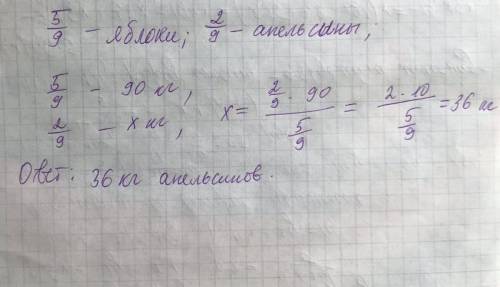 5/9 – яблоки; 2/9 – апельсины;
5/9 – 90 кг,
2/9 – x кг, x = (2/9 · 90)/(5/9) = (2 · 10)/(5/9) = 36 кг
Ответ: 36 кг апельсинов.